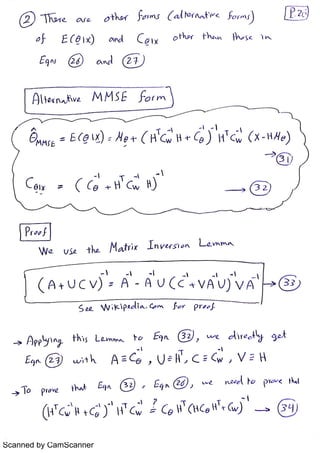 ② There are other forms (alternative forms) P.26
of E(θ|x) and Cθ|x other than those in
Eqns ㉖ and ㉗
Alternative MMSE form
θ̂MMSE = E(θ|x) = μθ + (HᵀCw⁻¹H + Cθ⁻¹)⁻¹ HᵀCw⁻¹ (x-Hμθ)
→ ㉛
Cθ|x = (Cθ⁻¹ + HᵀCw⁻¹H)⁻¹ → ㉜
Proof
We use the Matrix Inversion Lemma
(A+UCV)⁻¹ = A⁻¹ - A⁻¹U(C⁻¹+VA⁻¹U)⁻¹VA⁻¹ → ㉝
See Wikipedia.com for proof
→ Applying this Lemma to Eqn ㉜, we directly get
Eqn ㉗ with A=Cθ⁻¹, U=Hᵀ, C=Cw⁻¹, V=H
→ To prove that Eqn ㉜, Eqn ㉖, we need to prove that
(HᵀCw⁻¹H + Cθ⁻¹)⁻¹ HᵀCw⁻¹ ≟ CθHᵀ(HCθHᵀ+Cw)⁻¹ → ㉞
Scanned by CamScanner